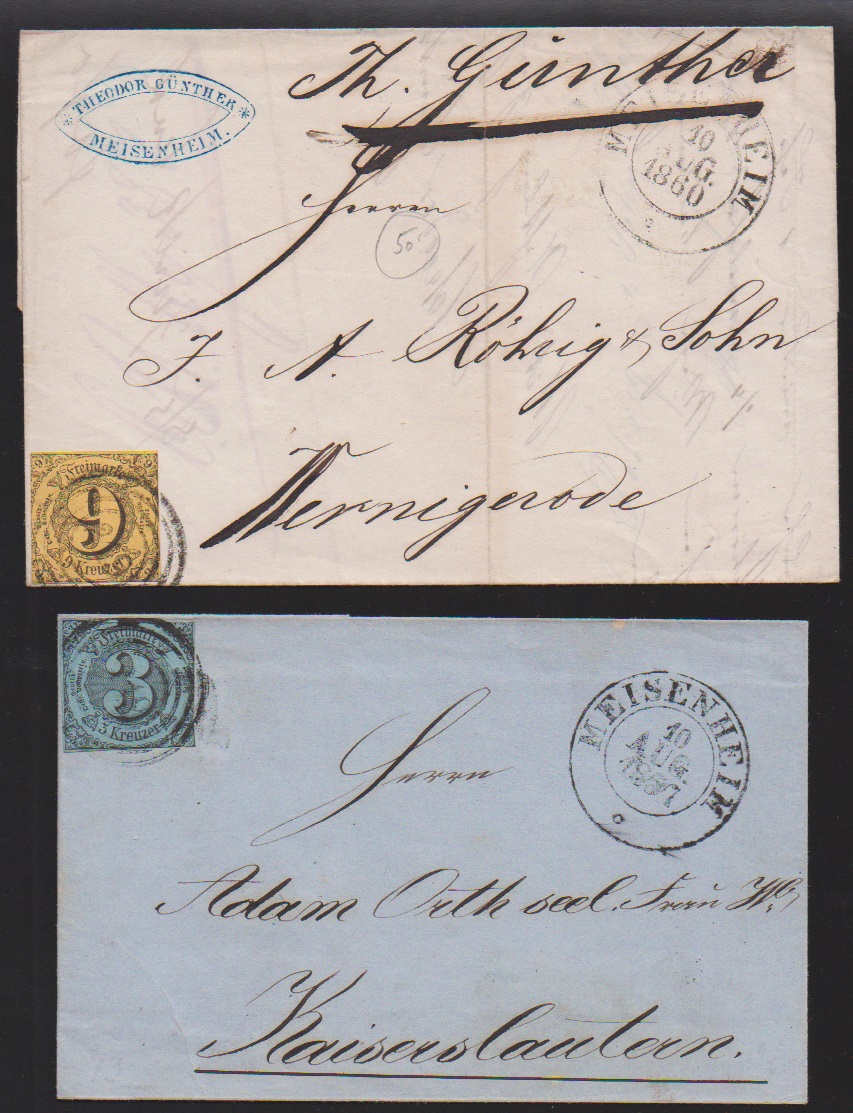 Th. Günther
* THEODOR GÜNTHER *
MEISENHEIM.
MEISENHEIM
10
AUG.
1860
Herrn
50
J. A. Röhrig & Sohn
Wernigerode
9 9
Freimarke
9
9 Kreuzer
Freimarke
3
3 Kreuzer
MEISENHEIM
10
AUG.
1857
Herrn
Adam Orth seel. Frau Wb
Kaiserslautern.